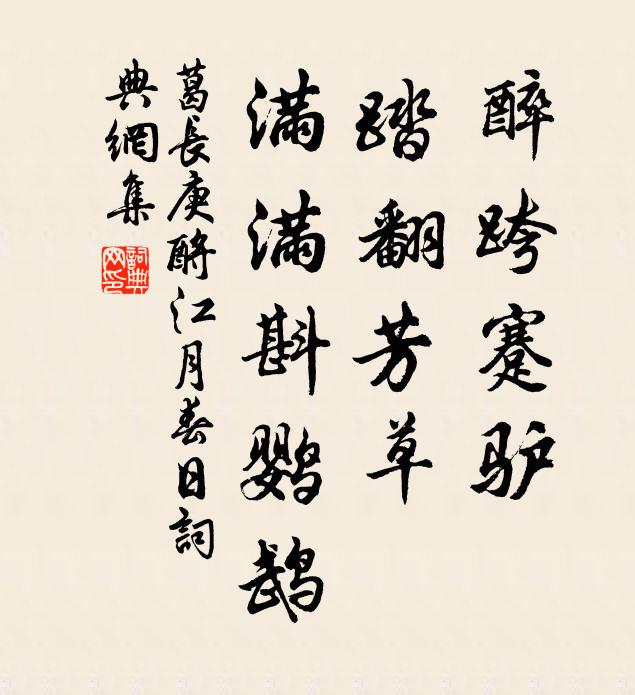 醉跨蹇驴
踏翻芳草
满满斟鹦鹉
葛長庚酹江月春日詞
典網集
詞典
网印